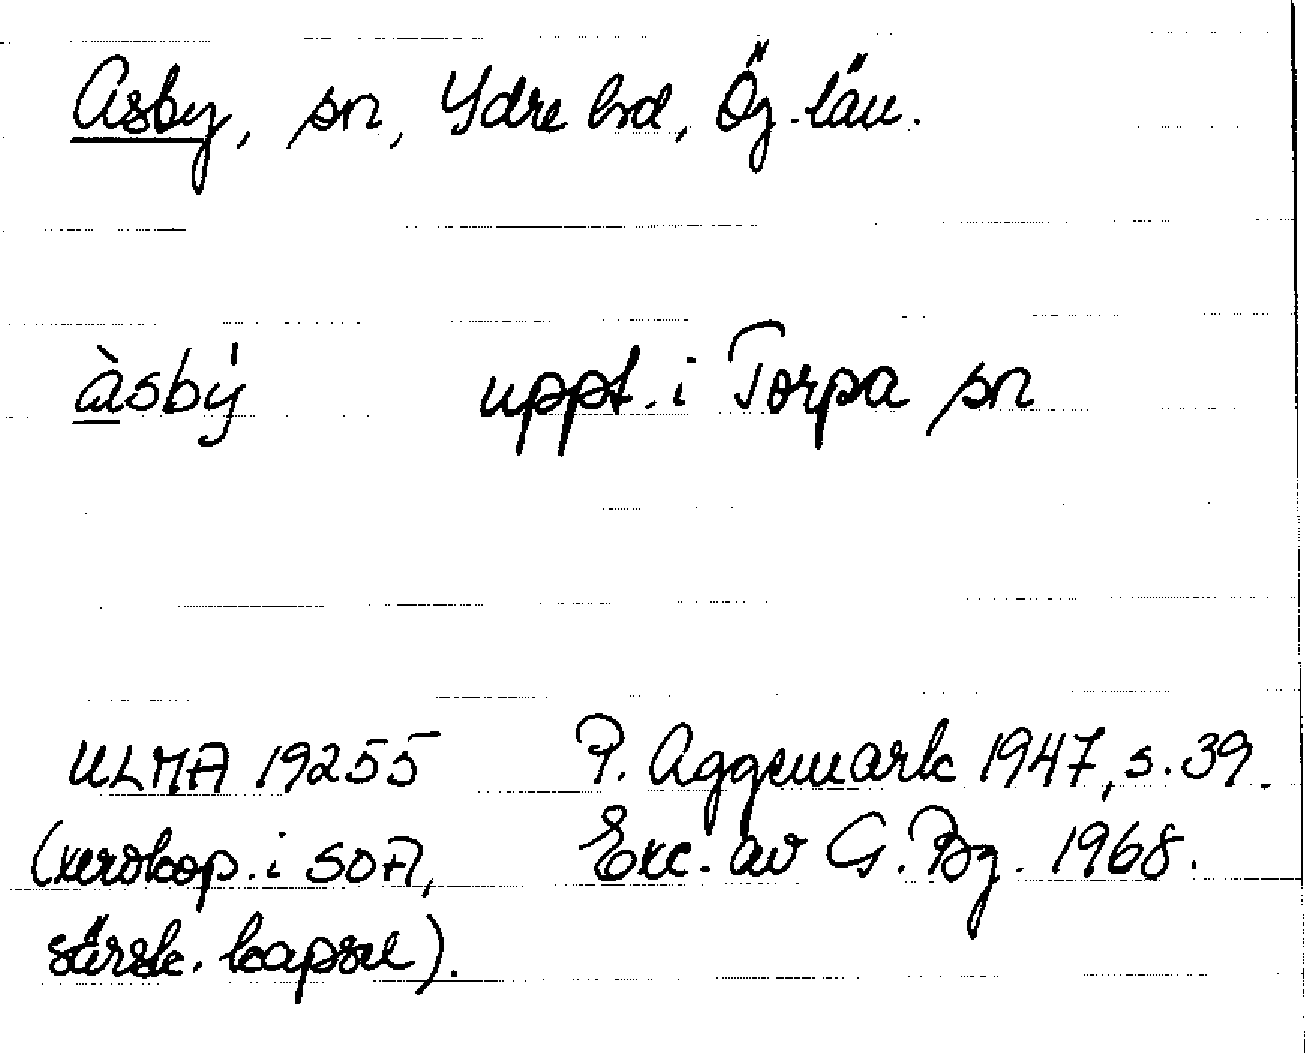 Asby, sn, Ydre hd, Ög. län.
àsbý uppt. i Torpa sn
ULMA 19255 P. Aggemark 1947, s. 39.
(xerokop. i SOA, Exc. av G. Bg. 1968.
särsk. kapsel).